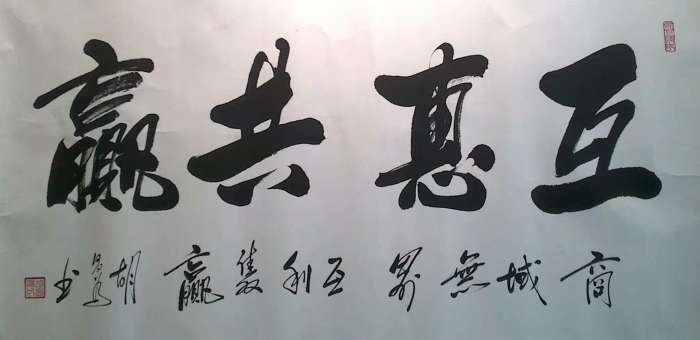 互惠共赢
商域無界互利雙赢胡书